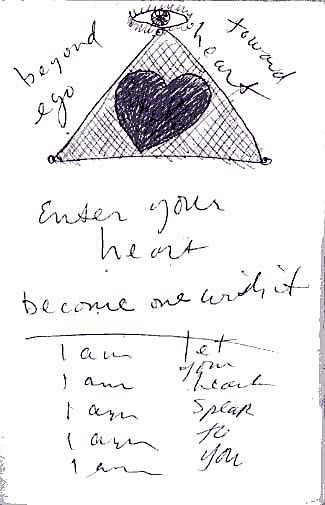 beyond ego
toward heart
Enter your
heart
become one with it
I am let
your
I am heart
I am speak
I am to
I am you